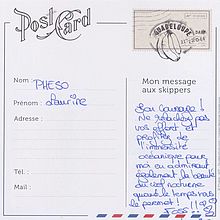 Post Card
GUADELOUPE
Nom : PHESO
Prénom : Laurine
Adresse :
Tél :
Mail :
Mon message
aux skippers
Bon Courage !
Ne relâchez pas
vos effort et
profiter de
l'immensité
océanique pour
moi ou admirant
également la beauté
du ciel nocturne
quand le temps vous
le permet !!